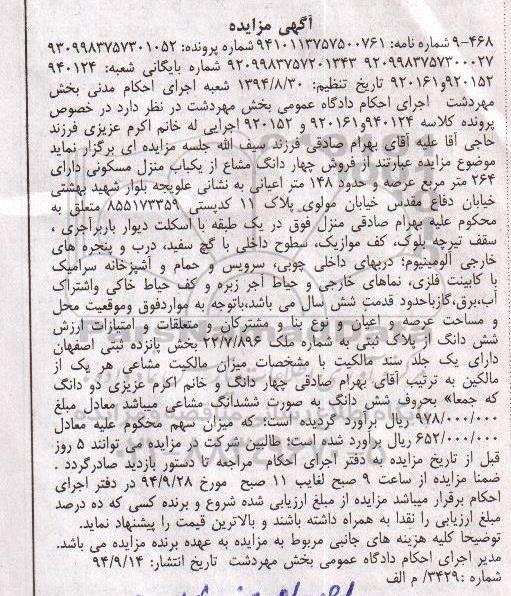 آگهی مزایده
۹-۴۶۸ شماره نامه: ۹۴۱۰۱۱۳۷۵۷۵۰۰۷۶۱ شماره پرونده: ۹۳۰۹۹۸۳۷۵۷۳۰۱۰۵۲
۹۲۰۹۹۸۳۷۵۷۳۰۰۰۲۷ ۹۲۰۹۹۸۳۷۵۷۲۰۱۳۴۳ شماره بایگانی شعبه: ۹۴۰۱۲۴
۹۲۰۱۵۲و۹۲۰۱۶۱ تاریخ تنظیم: ۱۳۹۴/۸/۳۰ شعبه اجرای احکام مدنی بخش
مهردشت اجرای احکام دادگاه عمومی بخش مهردشت در نظر دارد در خصوص
پرونده کلاسه ۹۴۰۱۲۴و۹۲۰۱۶۱ و ۹۲۰۱۵۲ اجرایی له خانم اکرم عزیزی فرزند
حاجی آقا علیه آقای بهرام صادقی فرزند سیف الله جلسه مزایده ای برگزار نماید
موضوع مزایده عبارتند از فروش چهار دانگ مشاع از یکباب منزل مسکونی دارای
۲۶۴ متر مربع عرصه و حدود ۱۴۸ متر اعیانی به نشانی علویجه بلوار شهید بهشتی
خیابان دفاع مقدس خیابان مولوی پلاک ۱۱ کدپستی ۸۵۵۱۷۳۳۵۹ متعلق به
محکوم علیه بهرام صادقی منزل فوق در یک طبقه با اسکلت دیوار باربرآجری ،
سقف تیرچه بلوک، کف موازیک، سطوح داخلی با گچ سفید، درب و پنجره های
خارجی آلومینیوم؛ دربهای داخلی چوبی، سرویس و حمام و آشپزخانه سرامیک
با کابینت فلزی، نماهای خارجی و حیاط آجر زبره و کف حیاط خاکی واشتراک
آب،برق،گازباحدود قدمت شش سال می باشد،باتوجه به مواردفوق وموقعیت محل
و مساحت عرصه و اعیان و نوع بنا و مشترکان و متعلقات و امتیازات ارزش
شش دانگ از پلاک ثبتی به شماره ملک ۲۲/۷/۸۹۶ بخش پانزده ثبتی اصفهان
دارای یک جلد سند مالکیت با مشخصات میزان مالکیت مشاعی هر یک از
مالکین به ترتیب آقای بهرام صادقی چهار دانگ و خانم اکرم عزیزی دو دانگ
که جمعا» بحروف شش دانگ به صورت ششدانگ مشاعی میباشد معادل مبلغ
۹۷۸/۰۰۰/۰۰۰ ریال برآورد گردیده است: که میزان سهم محکوم علیه معادل
۶۵۲/۰۰۰/۰۰۰ ریال برآورد شده است: طالبین شرکت در مزایده می توانند ۵ روز
قبل از تاریخ مزایده به دفتر اجرای احکام مراجعه تا دستور بازدید صادرگردد .
ضمنا مزایده از ساعت ۹ صبح لغایب ۱۱ صبح مورخ ۹۴/۹/۲۸ در دفتر اجرای
احکام برقرار میباشد مزایده از مبلغ ارزیابی شده شروع و برنده کسی که ده درصد
مبلغ ارزیابی را نقدا به همراه داشته باشند و بالاترین قیمت را پیشنهاد نماید.
توضیحا کلیه هزینه های جانبی مربوط به مزایده به عهده برنده مزایده می باشد.
مدیر اجرای احکام دادگاه عمومی بخش مهردشت تاریخ انتشار: ۹۴/۹/۱۴
شماره :۳۴۲۹/ م الف